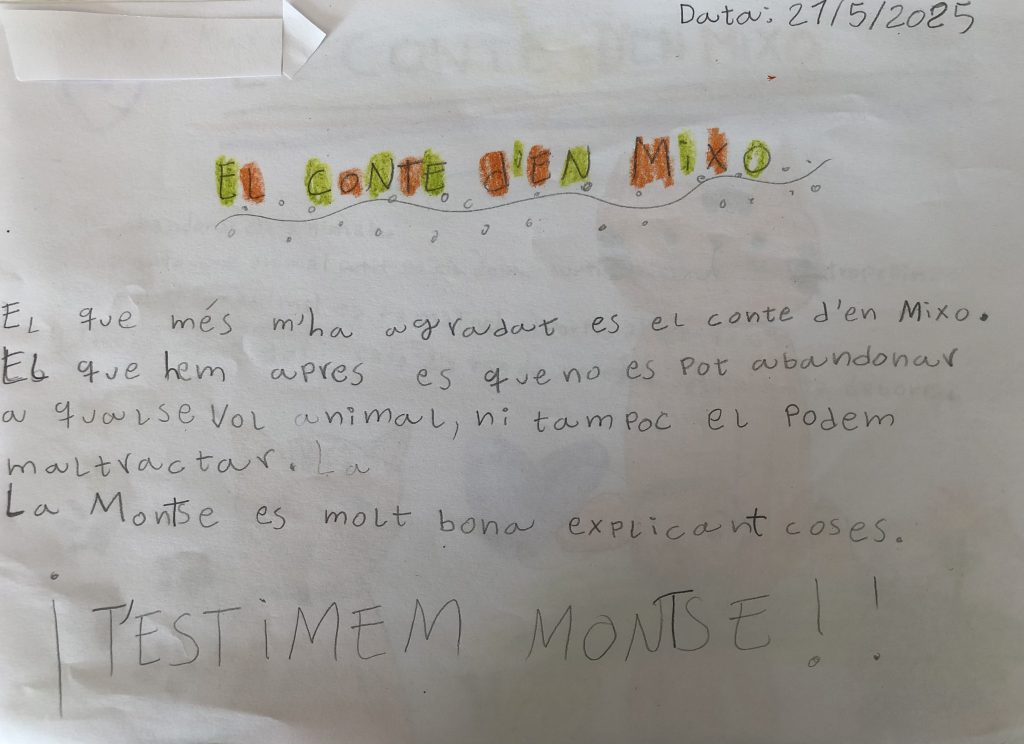 Data: 21/5/2025
EL CONTE d'EN MixO
EL que més m'ha agradat es el conte d'en Mixo.
EL que hem apres es que no es pot abandonar
a qualsevol animal, ni tampoc el podem
maltractar. La
La Montse es molt bona explicant coses.
¡T'ESTiMEM MONTSE!!